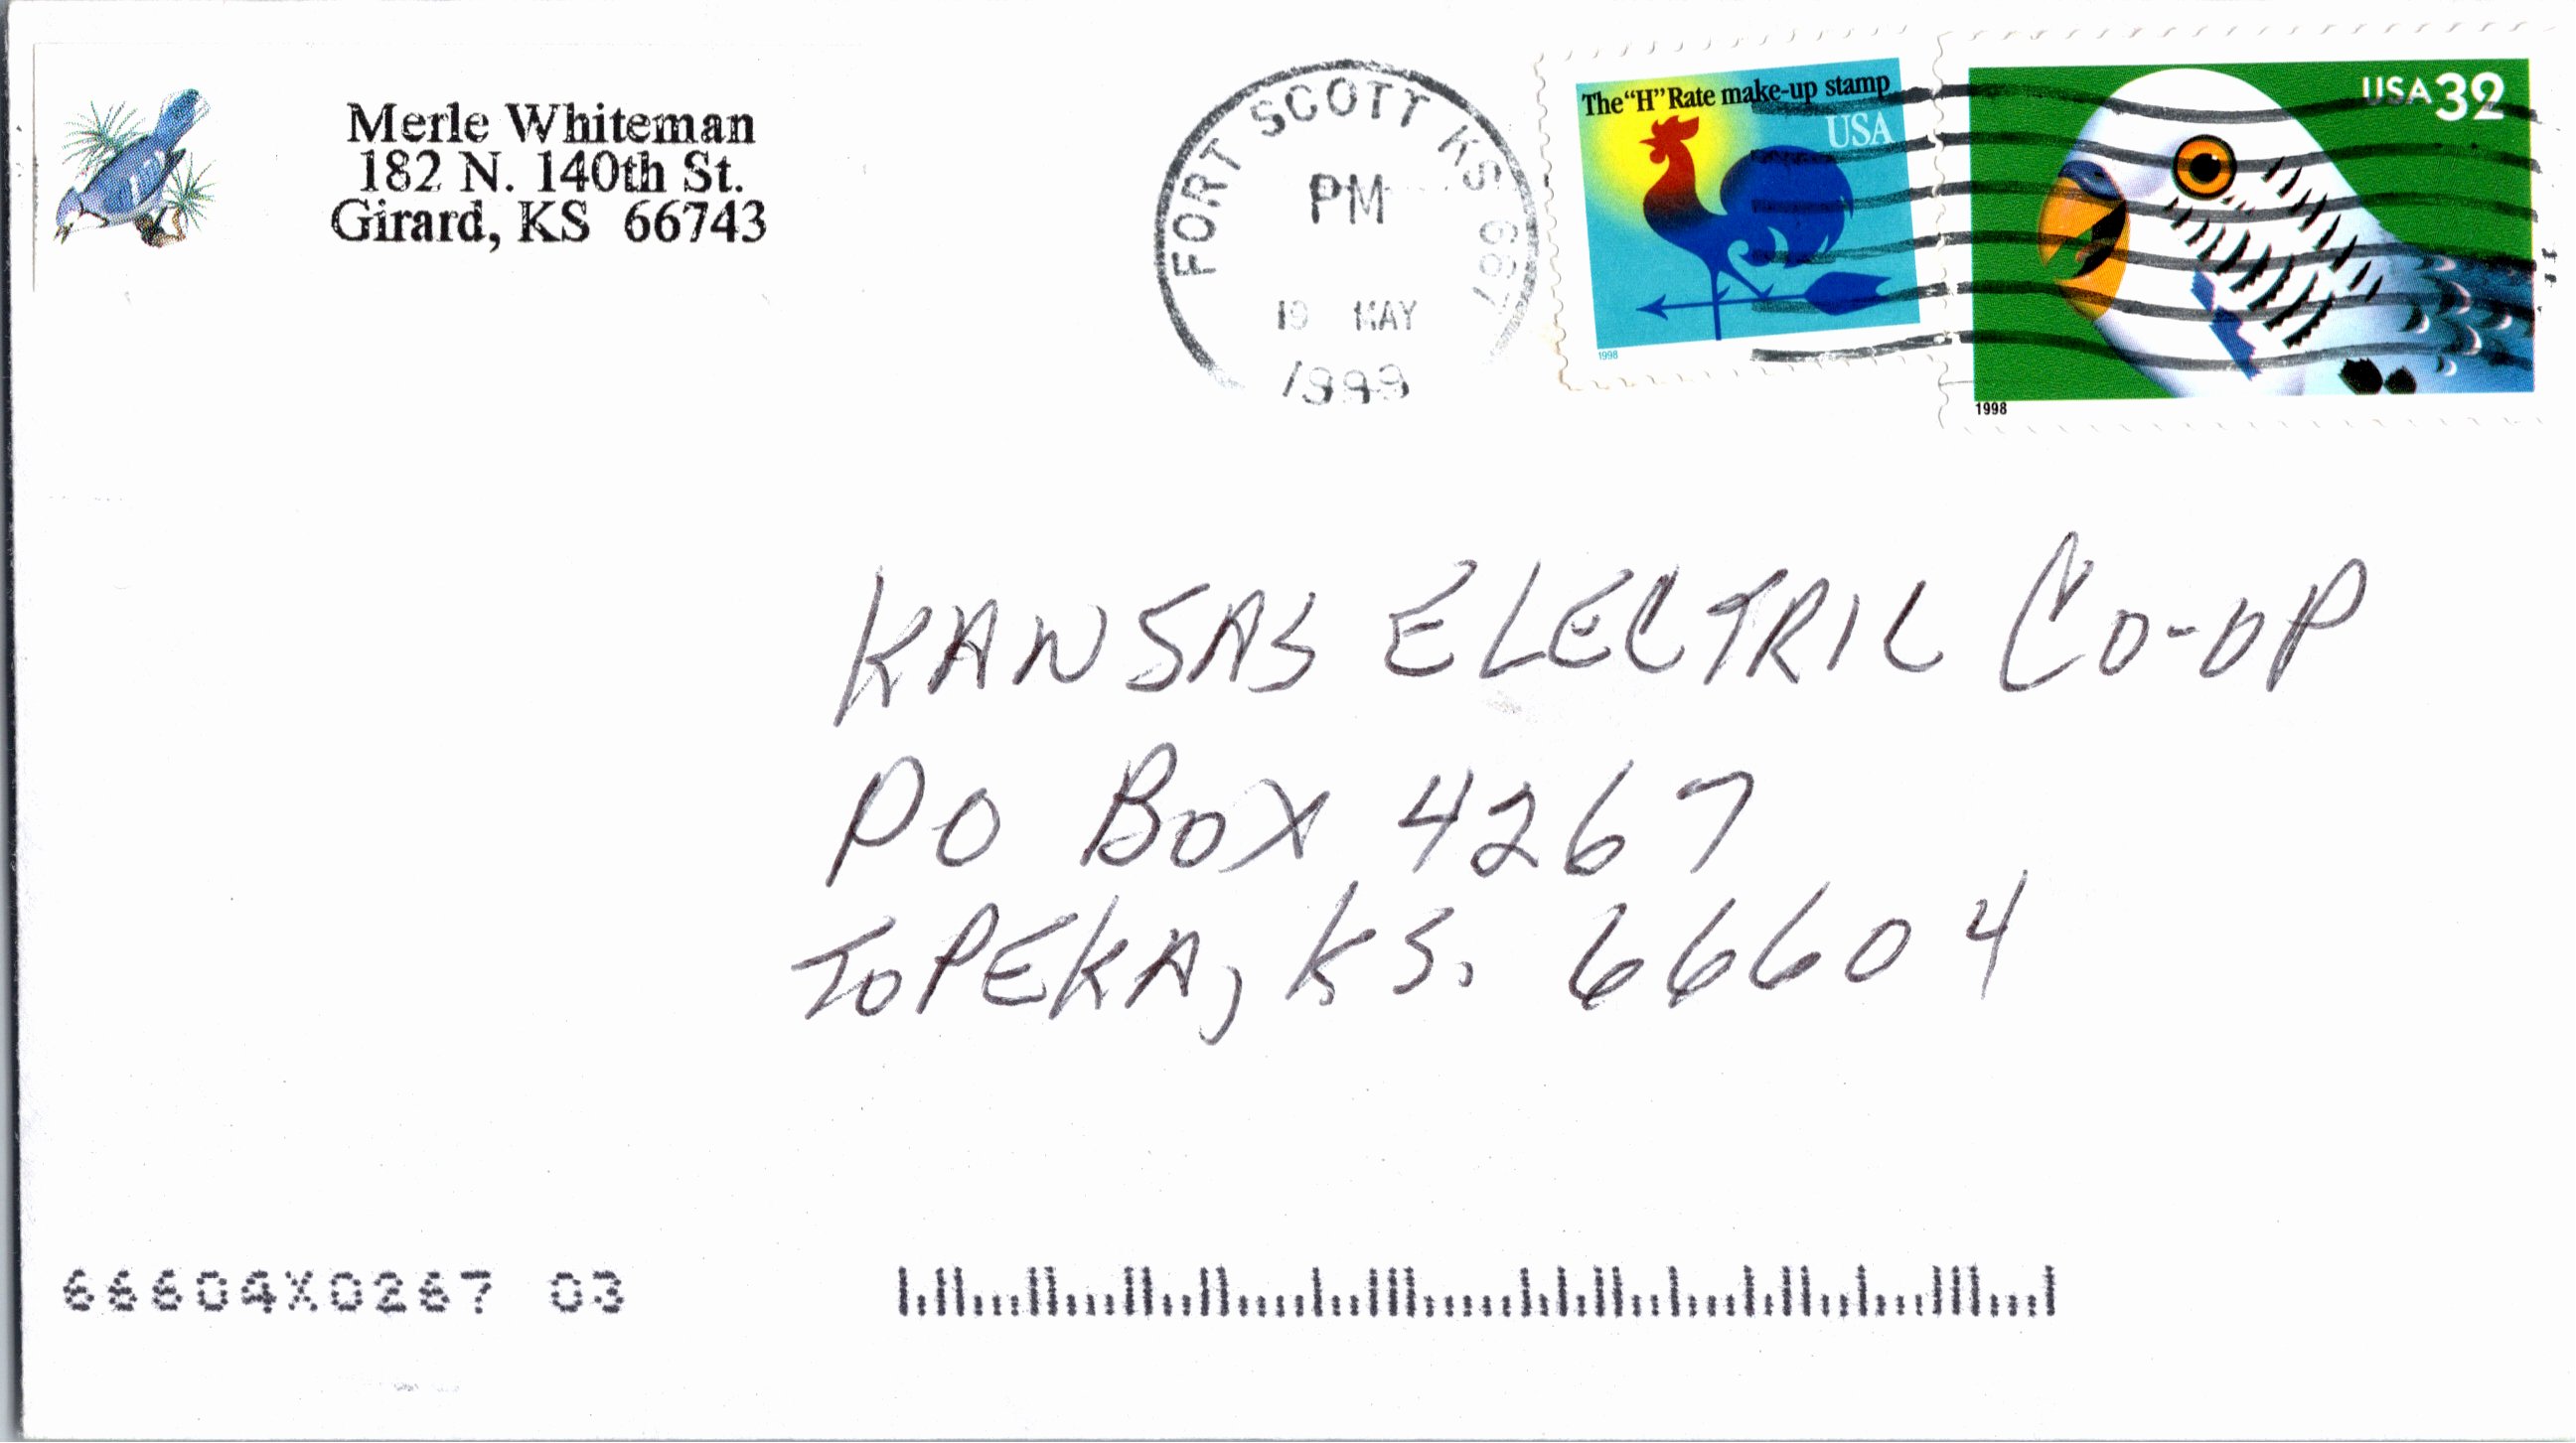 Merle Whiteman
182 N. 140th St.
Girard, KS 66743
FORT SCOTT KS 667
PM
19 MAY
1999
The "H" Rate make-up stamp
USA
1998
USA 32
1998
KANSAS ELECTRIC CO-OP
PO BOX 4267
TOPEKA, KS. 66604
66604X0267 03